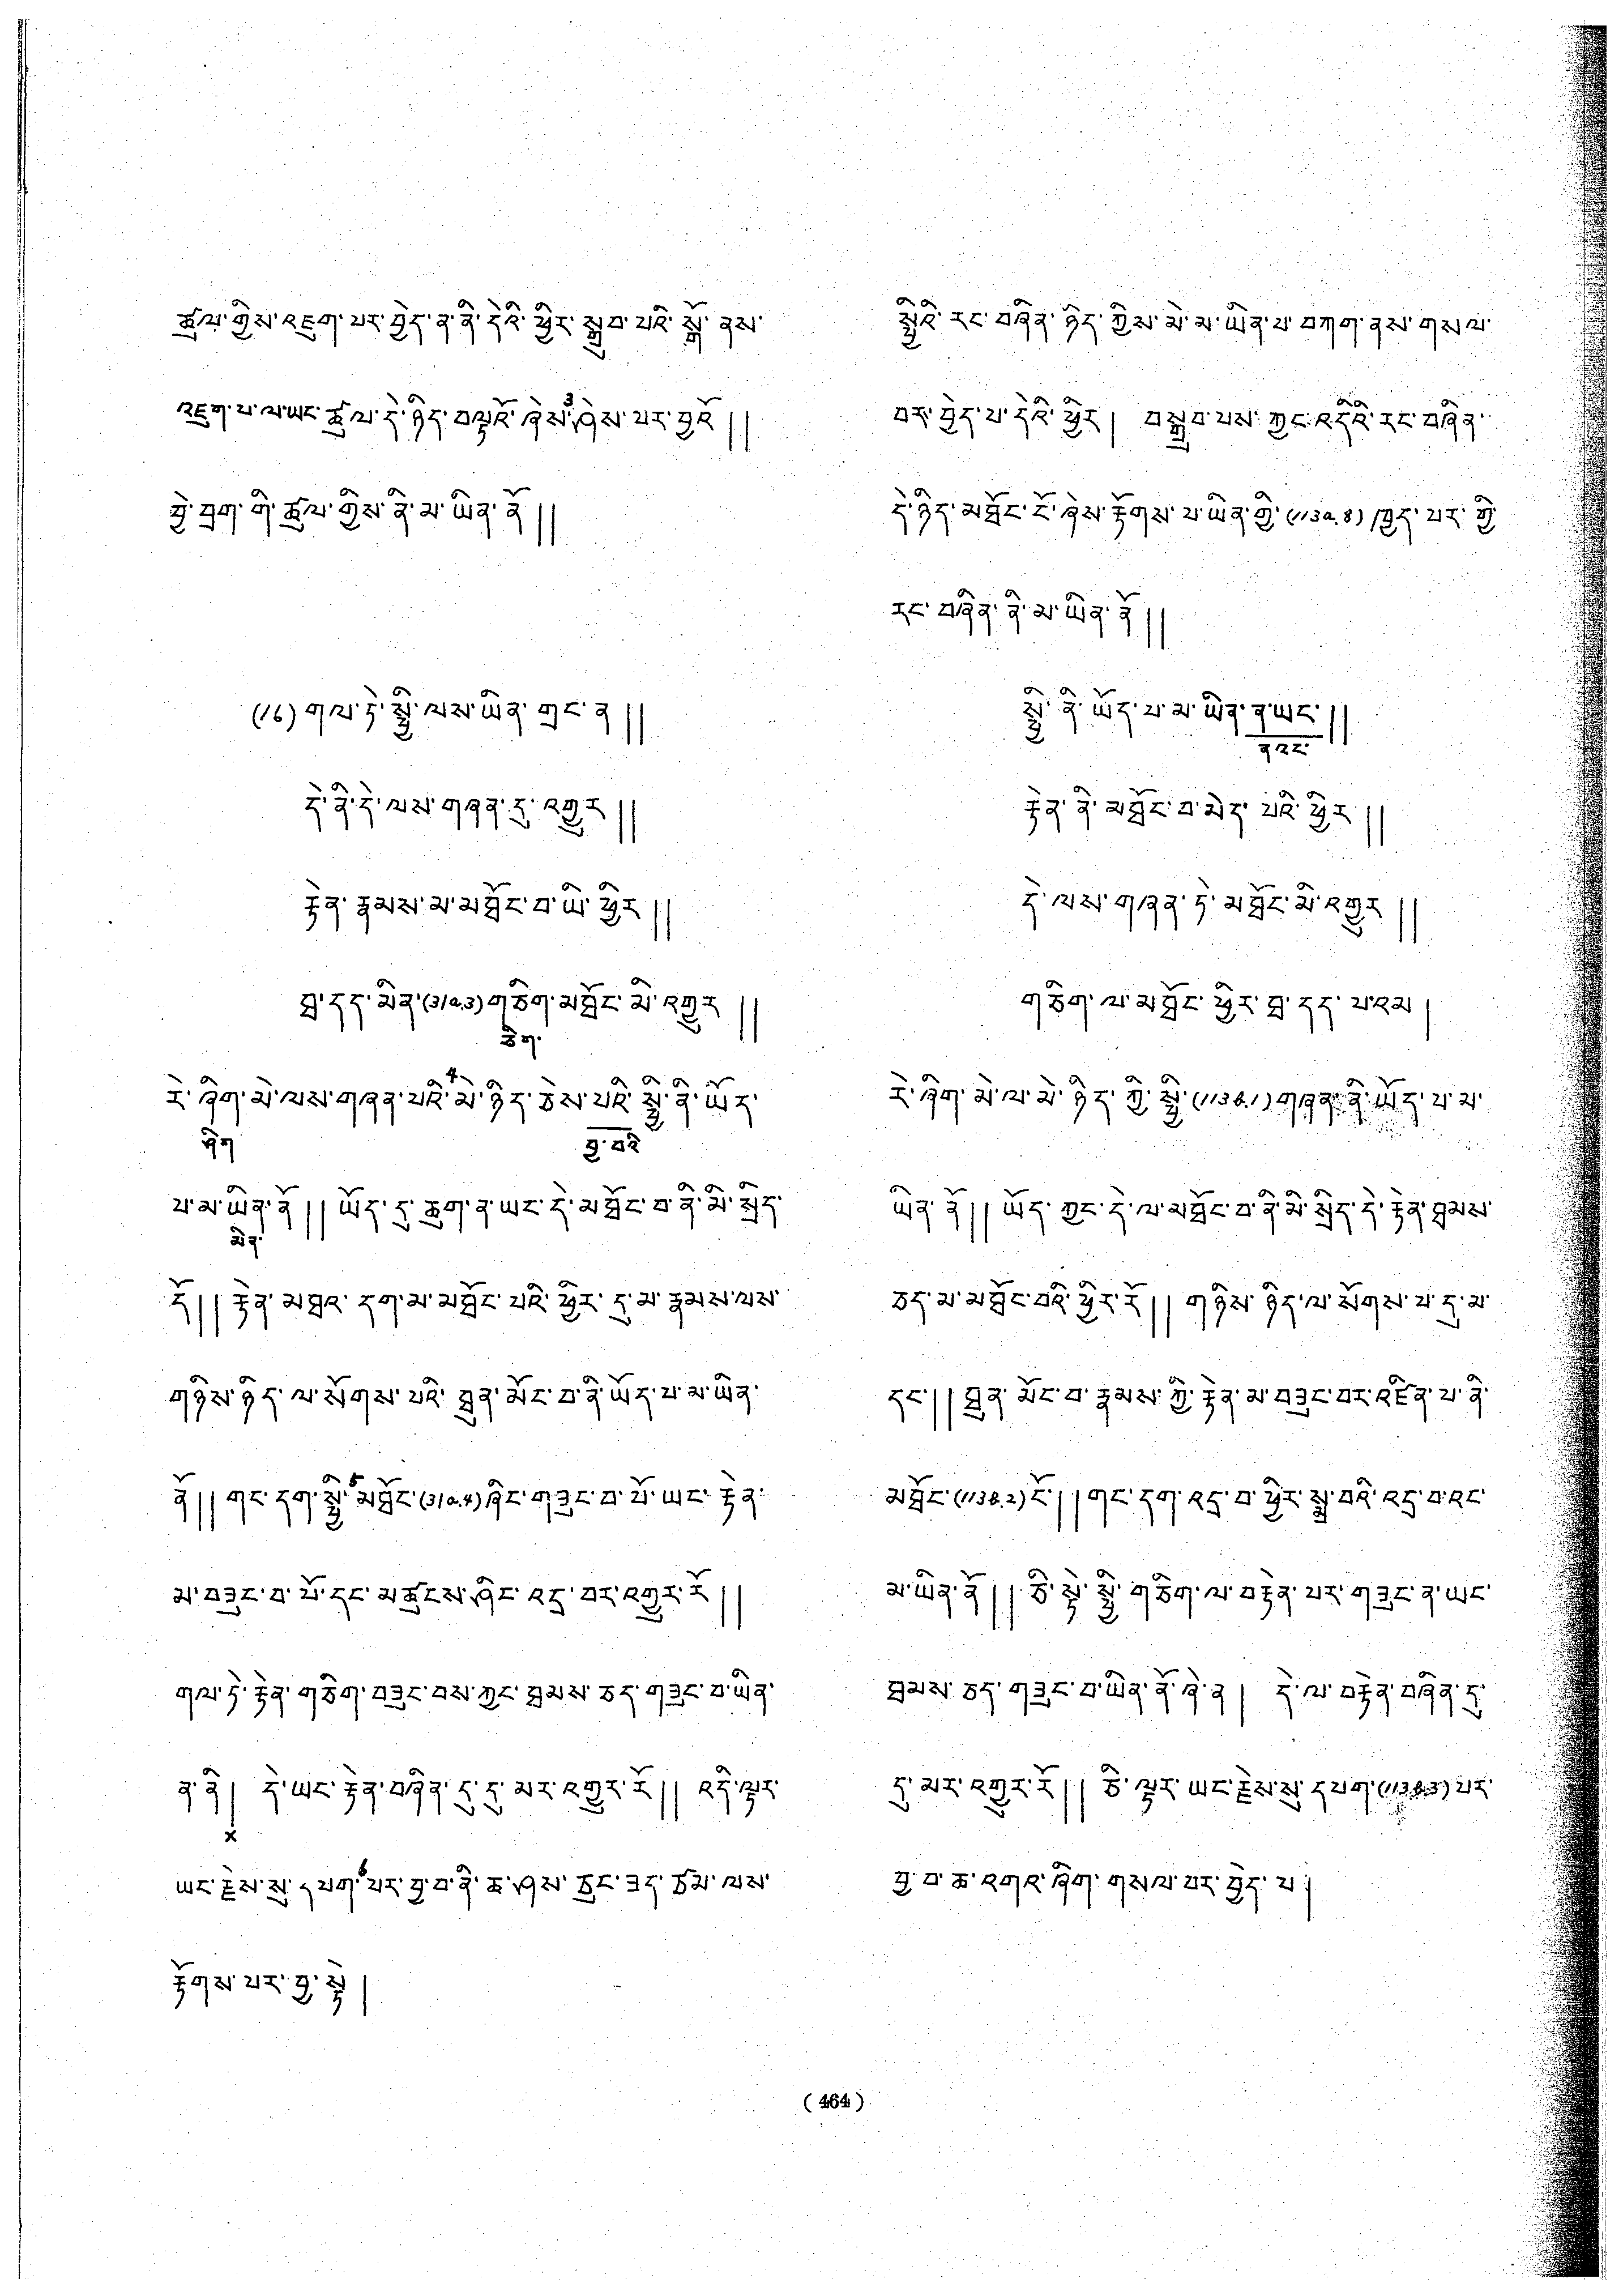 ཚུལ་གྱིས་འཇུག་པར་བྱེད་ན་ནི་དེའི་ཕྱིར་སྒྲུབ་པའི་སྒོ་ནས་
འཇུག་པ་ལ་ཡང་ཚུལ་དེ་ཉིད་བལྟའོ་ཞེས་3་ཤེས་པར་བྱའོ།།
བྱེ་བྲག་གི་ཚུལ་གྱིས་ནི་མ་ཡིན་ནོ།།
(16) གལ་ཏེ་སྤྱི་ལས་ཡིན་གྲང་ན།།
དེ་ནི་དེ་ལས་གཞན་དུ་འགྱུར།།
རྟེན་རྣམས་མ་མཐོང་བ་ཡི་ཕྱིར།།
ཐ་དད་མིན་(31a.3)གཅིག་མཐོང་མི་འགྱུར།།
ཅིག་
རེ་ཞིག་མེ་ལས་གཞན་པའི་4་མེ་ཉིད་ཅེས་པའི་སྤྱི་ནི་ཡོད་
ཤིག བྱ་བའི
པ་མ་ཡིན་ནོ།། ཡོད་དུ་ཆུག་ན་ཡང་དེ་མཐོང་བ་ནི་མི་སྲིད་
མིན་
དོ།། རྟེན་མཐའ་དག་མ་མཐོང་པའི་ཕྱིར་དུ་མ་རྣམས་ལས་
གཉིས་ཉིད་ལ་སོགས་པའི་ཐུན་མོང་བ་ནི་ཡོད་པ་མ་ཡིན་
ནོ།། གང་དག་སྤྱི་5་མཐོང་(31a.4)ཞིང་གཟུང་བ་པོ་ཡང་རྟེན་
མ་བཟུང་བ་པོ་དང་མཚུངས་ཤིང་འདྲ་བར་འགྱུར་རོ།།
གལ་ཏེ་རྟེན་གཅིག་བཟུང་བས་ཀྱང་ཐམས་ཅད་གཟུང་བ་ཡིན་
ན་ནི། དེ་ཡང་རྟེན་བཞིན་དུ་དུ་མར་འགྱུར་རོ།། འདི་ལྟར་
x
ཡང་རྗེས་སུ་དཔག་6་པར་བྱ་བ་ནི་ཆ་ཤས་ཅུང་ཟད་ཙམ་ལས་
རྟོགས་པར་བྱ་སྟེ།
སྤྱིའི་རང་བཞིན་ཉིད་ཀྱིས་མེ་མ་ཡིན་པ་བཀག་ནས་གསལ་
བར་བྱེད་པ་དེའི་ཕྱིར། བསྒྲུབ་པས་ཀྱང་འདིའི་རང་བཞིན་
དེ་ཉིད་མཐོང་ངོ་ཞེས་རྟོགས་པ་ཡིན་གྱི་(113a.8)ཁྱད་པར་གྱི་
རང་བཞིན་ནི་མ་ཡིན་ནོ།།
སྤྱི་ནི་ཡོད་པ་མ་ཡིན་ན་ཡང་།།
ནའང་
རྟེན་ནི་མཐོང་བ་མེད་པའི་ཕྱིར།།
དེ་ལས་གཞན་ཏེ་མཐོང་མི་འགྱུར།།
གཅིག་ལ་མཐོང་ཕྱིར་ཐ་དད་པའམ།
རེ་ཞིག་མེ་ལ་མེ་ཉིད་ཀྱི་སྤྱི་(113b.1)གཞན་ནི་ཡོད་པ་མ་
ཡིན་ནོ།། ཡོད་ཀྱང་དེ་ལ་མཐོང་བ་ནི་མི་སྲིད་དེ་རྟེན་ཐམས་
ཅད་མ་མཐོང་བའི་ཕྱིར་རོ།། གཉིས་ཉིད་ལ་སོགས་པ་དུ་མ་
དང་།། ཐུན་མོང་བ་རྣམས་ཀྱི་རྟེན་མ་བཟུང་བར་འཛིན་པ་ནི་
མཐོང་(113b.2)ངོ་།། གང་དག་འདྲ་བ་ཕྱིར་སྨྲ་བའི་འདྲ་བ་འང་
མ་ཡིན་ནོ།། ཅི་སྟེ་སྤྱི་གཅིག་ལ་བརྟེན་པར་གཟུང་ན་ཡང་
ཐམས་ཅད་གཟུང་བ་ཡིན་ནོ་ཞེ་ན། དེ་ལ་བརྟེན་བཞིན་དུ་
དུ་མར་འགྱུར་རོ།། ཅི་ལྟར་ཡང་རྗེས་སུ་དཔག་(113b.3)པར་
བྱ་བ་ཆ་འགའ་ཞིག་གསལ་བར་བྱེད་པ།
(464)